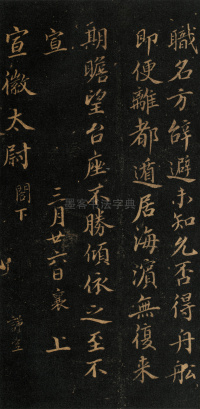 職名方辭避未知允否得舟舩
即便離都遁居海濱無復来
期瞻望台座不勝傾依之至不
宣 三月廿六日襄 上
宣徽太尉閣下
墨客书法字典